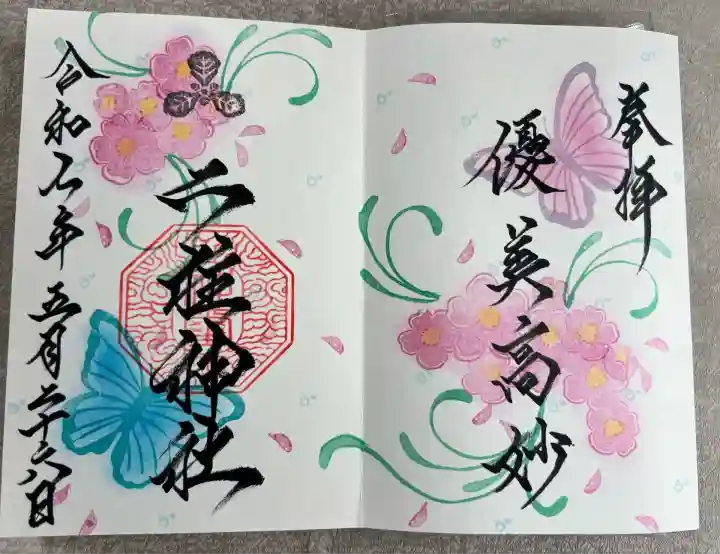 奉拝
優美高妙
二柱神社
令和七年五月二十六日